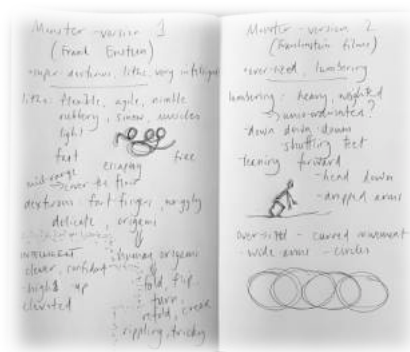 Monster - version 1
(Frank Einstein)
• super-dexterous, lithe, very intelligent
lithe: flexible, agile, nimble
rubbery, sinew, muscles
light
fast escaping free
mid-range
→ over the floor
dexterous - fast fingers, wiggly
delicate, origami
INTELLIGENT
clever, confident
- high up
elevated
human origami
fold, flip,
turn,
refold, crease
rippling, tricky
Monster - version 2
(Frankenstein films)
• over-sized, lumbering
lumbering: heavy, weighted
→ uncoordinated?
- down down down
shuffling feet
leaning forward
- head down
- dropped arms
oversized - curved movement
- wide arms - circles